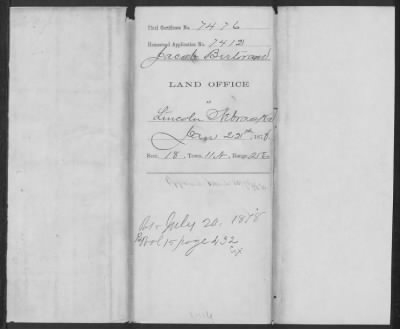 Final Certificate No. 7476
Homestead Application No. 7412
Jacob Bertrand.
LAND OFFICE
Lincoln Nebraska
Jan 22nd, 187
Sect. 18, Town. 11 N, Range 2 E
July 20, 1878
Vol 1 page 432